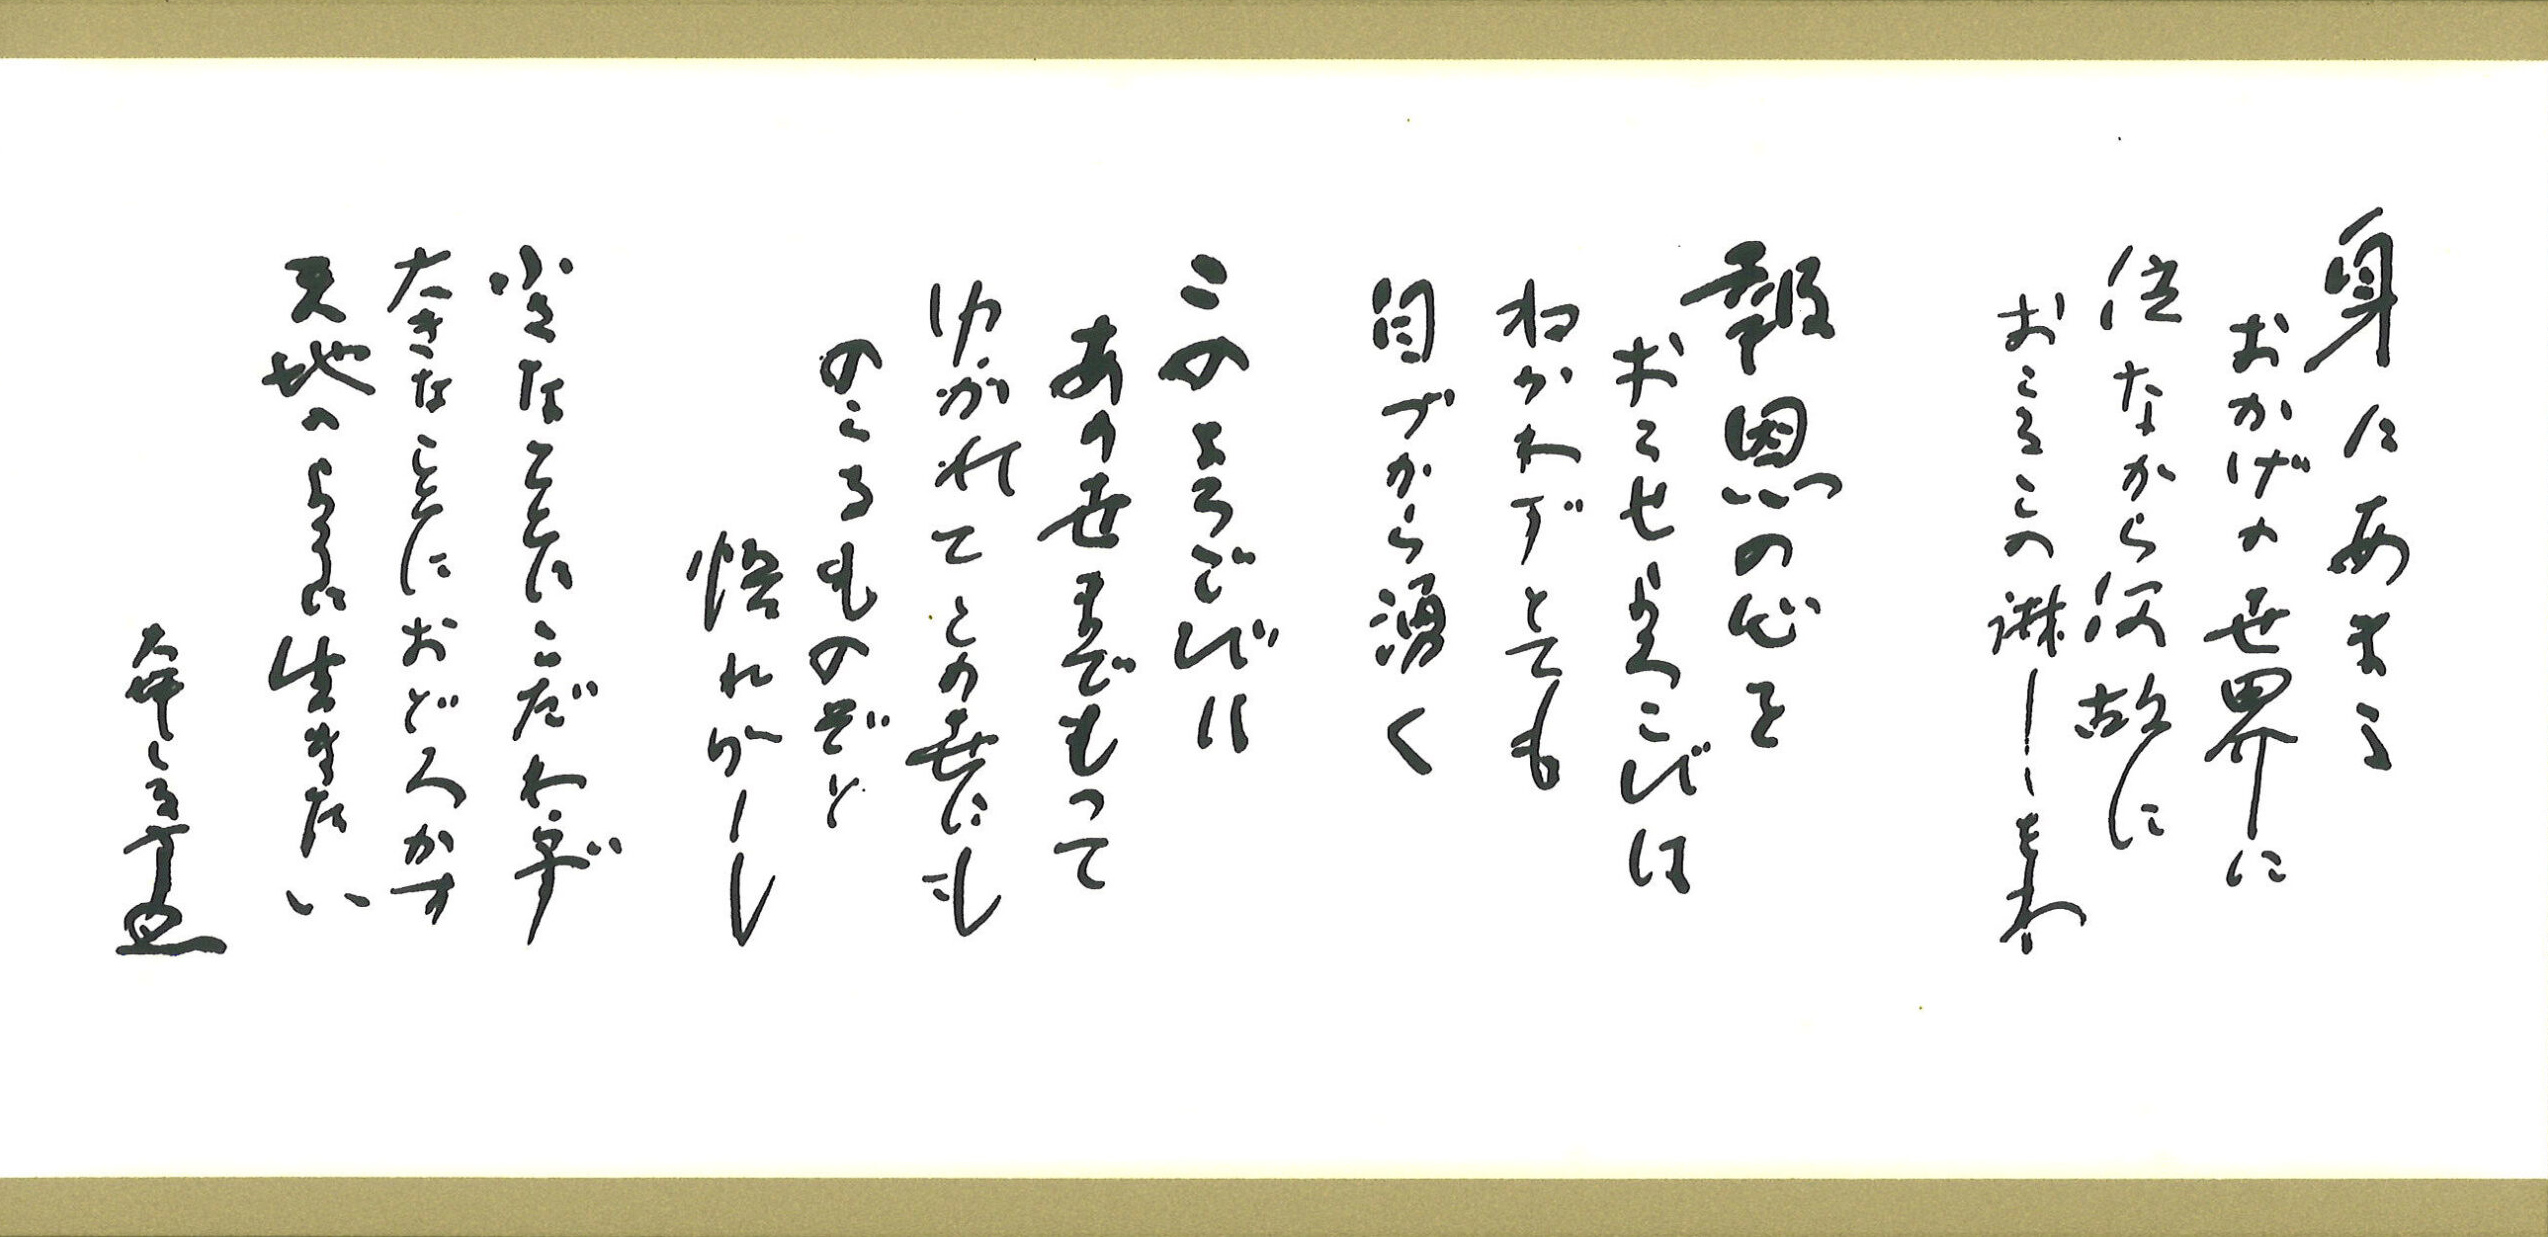 身にあまる
おかげの世界に
住ながら何故に
おこるこの淋しさわ
報恩の心を
おこせよろこびは
ねがわずとても
自づから湧く
このよろこびは
あの世までもって
ゆかれてこの世にも
のこるものぞと
悟れかし
小さなことにこだわらず
大きなことにおどろかず
天地のように生きたい